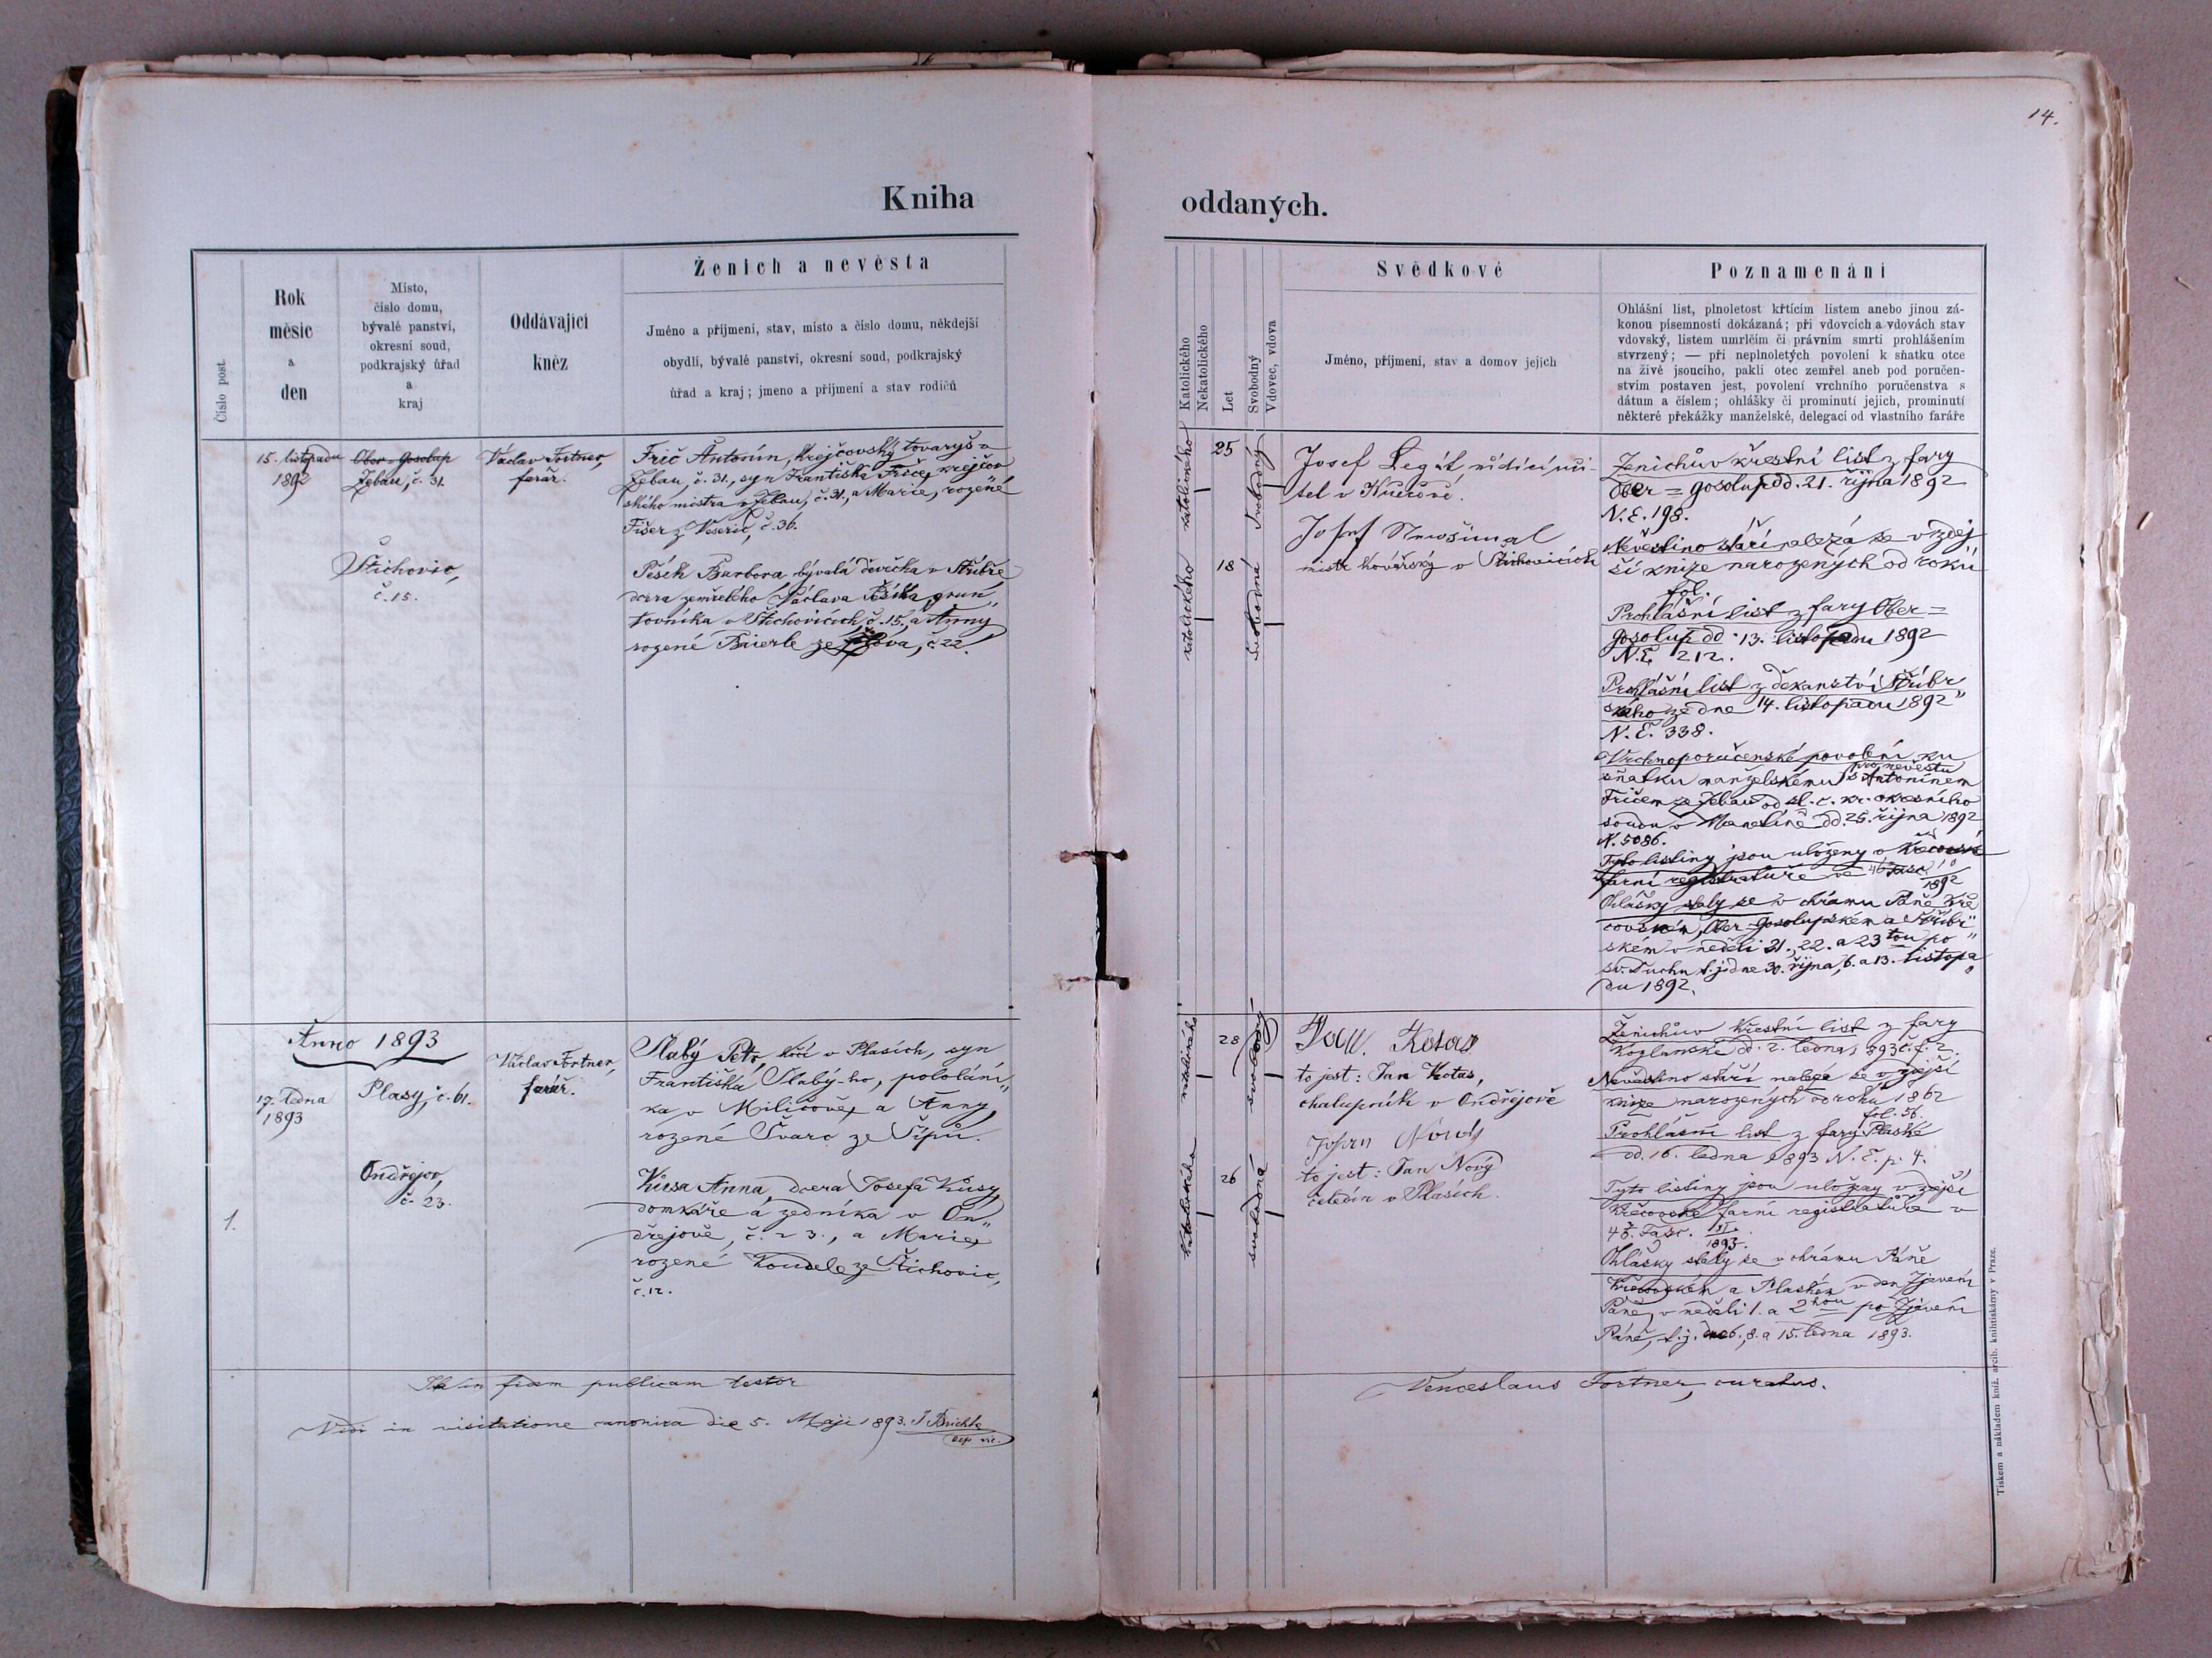 14.
Kniha
oddaných.
Číslo post.
Rok
měsíc
a
den
Místo,
číslo domu,
bývalé panství,
okresní soud,
podkrajský úřad
a
kraj
Oddávající
kněz
Ženich a nevěsta
Jméno a příjmení, stav, místo a číslo domu, někdejší
obydlí, bývalé panství, okresní soud, podkrajský
úřad a kraj; jmeno a příjmení a stav rodičů
Katolického
Nekatolického
Let
Svobodný
Vdovec, vdova
Svědkové
Jméno, příjmení, stav a domov jejich
Poznamenání
Ohlášní list, plnoletost křtícím listem anebo jinou zá-
konou písemností dokázaná; při vdovcích a vdovách stav
vdovský, listem umrlčím či právním smrti prohlášením
stvrzený; — při neplnoletých povolení k sňatku otce
na živě jsoucího, pakli otec zemřel aneb pod poručen-
stvím postaven jest, povolení vrchního poručenstva s
dátum a číslem; ohlášky či prominutí jejich, prominutí
některé překážky manželské, delegací od vlastního faráře
15. listopadu
1892
Ober-Gosolup
Žebau, č. 31.
Václav Fortner,
farář.
Frič Antonín, krejčovský tovaryš v
Žebau, č. 31., syn Františka Friče, krejčov
ského mistra v Žebau, č. 31., a Marie, rozené
Fišer z Vešeric, č. 36.
Štichovic,
č. 15.
Pěsek Barbora bývalá děvečka v Stříbře
dcera zemřelého Václava Pěška, grun„
tovníka v Štichovicích, č. 15., a Anny
rozené Baierle ze, č. 22.
katolického
25
svobodný
katolického
18
svobodná
Josef Legát, řídící uči-
tel v
Josef
mistr kovářský v Štichovicích
Ženichův křestní list z fary
Ober=gosolup dd. 21. října 1892
N.E. 198.
Nevěstino stáří nalezá se v zdej
ší knize narozených od roku
fol.
Prohlášní list z fary Ober=
gosolup dd. 13. listopadu 1892
N.E. 212.
Prohlášní list z děkanství Stříbr„
ského ze dne 14. listopadu 1892
N.E. 338.
Vrchnoporučenské povolení ku
pro nevěstu
sňatku manželskému s Antonínem
Fričem ze Žebau od sl. c. kr. okresního
soudu v Manetíně dd. 25. října 1892
N. 5086.
Tyto listiny jsou uloženy v
farní registratuře ve 46 fasc. 10/1892
Ohlášky staly se v chrámu Páně Kře
covském, Ober-Gosolupském a Stříbr„
ském v neděli 21., 22. a 23tou po
sv. Duchu t. j. dne 30. října, 6. a 13. listopa
du 1892.
Anno 1893
1.
17. ledna
1893
Plasy, č. 61.
Václav Fortner,
farář.
Slabý Petr, kočí v Plasích, syn
Františka Slabý-ho, pololání„
ka v Milíčově, a Anny,
rozené Švarc ze Sípů.
Ondřejov,
č. 23.
Kůsa Anna, dcera Josefa Kůsy,
domkáře a zedníka v On„
dřejově, č. 23., a Marie,
rozené Koudele ze Štichovic,
č. 12.
katolického
28
svobodný
katolického
26
svobodná
Kotas
to jest: Jan Kotas,
chalupník v Ondřejově
Nový
to jest: Jan Nový
čeledín v Plasích.
Ženichův křestní list z fary
Kožlanské d. 2. ledna 1893 č. j. 2.
Nevěstino stáří nalézá se v zdejší
knize narozených od roku 1862
fol. 56.
Prohlášní list z fary Plaské
dd. 16. ledna 1893 N.E. p. 4.
Tyto listiny jsou uloženy v zdejší
Křečovské farní registratuře v
48. Fasc. 1893.
Ohlášky staly se v chrámu Páně
Křečovském a Plaském v den Zjevení
Páně, v neděli 1. a 2hou po Zjevení
Páně, t. j. dne 6., 8. a 15. ledna 1893.
Ita in fidem publicam testor
Venceslaus Fortner, curatus.
Vidi in visitatione canonica die 5. Maji 1893. J. Brichta
Tiskem a nákladem kníž. arcib. knihtiskárny v Praze.